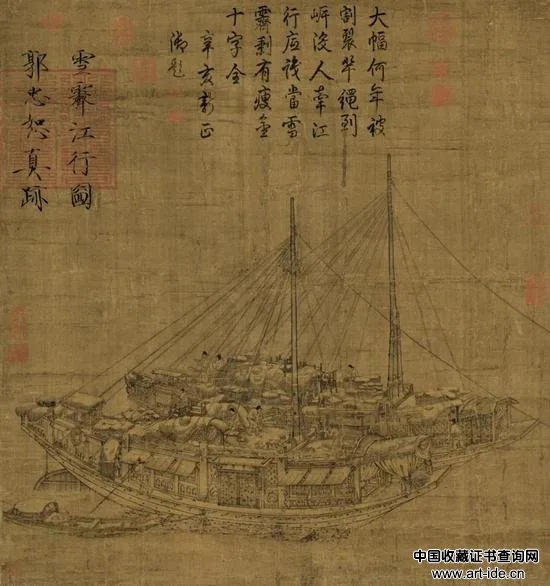 大幅何年被
割裂繩到
岸没人牽江
行应識當雪
霽剩有瘦金
十字全
辛亥新正
御題
雪霽江行圖
郭忠恕真跡
中国收藏证书查询网
www.art-ide.cn